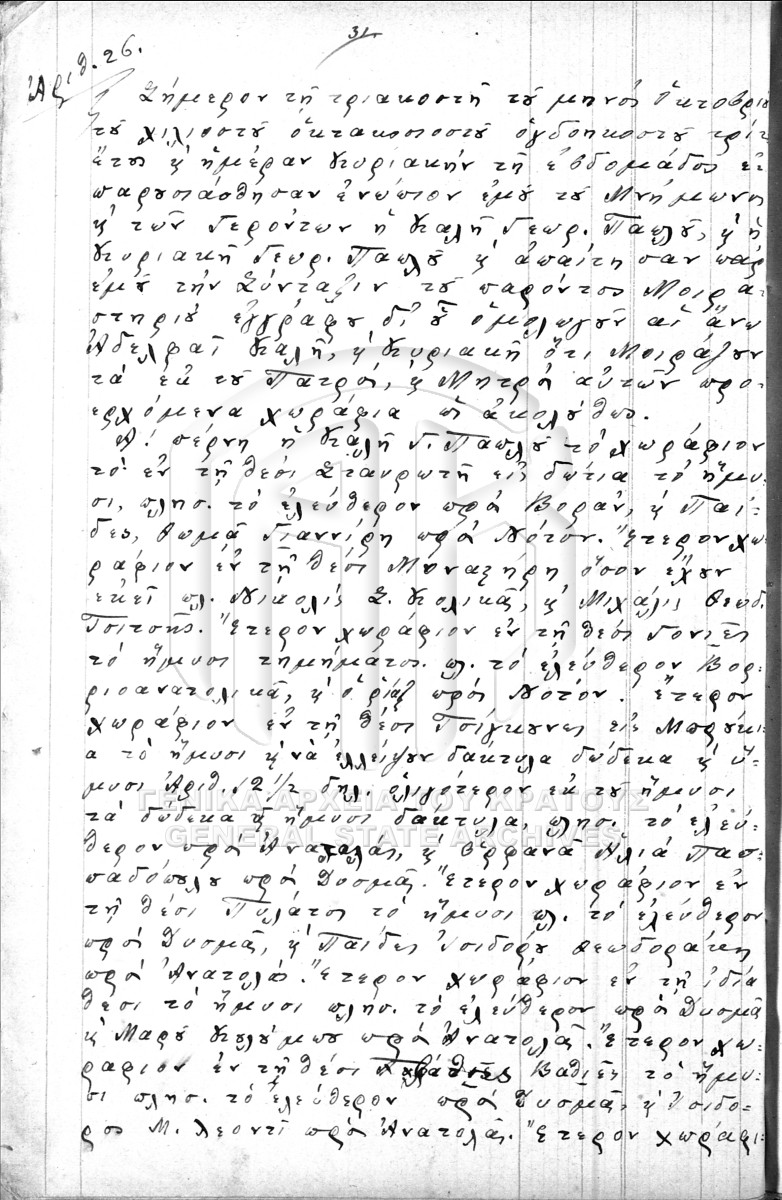 31
Ἀριθ. 26.
Σήμερον τῇ τριακοστῇ τοῦ μηνὸς Ὀκτοβρίου
τοῦ χιλιοστοῦ ὀκτακοσιοστοῦ ὀγδοηκοστοῦ τρίτ
ἔτους κ ἡμέραν Κυριακὴν τῆ ἑβδομάδος
παρουσιάσθησαν ἐνώπιον ἐμοῦ τοῦ Μνήμωνος
κ τῶν Γερόντων ἡ Καλὴ Γεωρ. Παπλοῦ, κ ἡ
Κυριακὴ Γεωρ. Παπλοῦ κ ἀπαίτησαν παρ
ἐμοῦ τὴν Σύνταξιν τοῦ παρόντος Μοιρα-
στηριοῦ ἐγγράφου δι' οὗ ὁμολωγοῦν αἱ ἄνω
Ἀδελφαὶ Καλὴ, κ Κυριακὴ ὅτι Μοιράζουν
τὰ ἐκ τοῦ Πατρὸς, κ Μητρὸς αὐτῶν προ-
ερχόμενα χωράφια ὡς ἀκολούθως.
Α! πέρνη ἡ Καλὴ Γ. Παπλοῦ τὸ χωράφιον
τὸ ἐν τῇ θέσι Σταυρωτῆ εἰς δώτια τὸ ἥμυ-
σι, πλησ. τὸ ἐλεύθερον πρὸς Βορὰν, κ Παῖ-
δες, Θωμᾶ Γιαννίρη πρὸς Νότον. Ἕτερον χω-
ράφιον ἐν τῇ θέσι ὅσον ἔχουν
ἐκεῖ πλ. Νικολὶς Σ. Κολικᾶς, κ Μιχάλις Θεωδ.
Τσιτσῆς. Ἕτερον χωράφιον ἐν τῇ θέσι Γονιὲς
τὸ ἥμυσι τμημάτος. πλ. τὸ ἐλεύθερον Βορ-
ριοανατολικὰ, κ πρὸς Νότον. Ἕτερον
χωράφιον ἐν τῇ θέσι Τσίγκουνες εἰς
α τὸ ἥμυσι κ νὰ ἐλλείψουν δάκτυλα δώδεκα κ ἥ-
μυσι Ἀριθ. 12 ½ δηλ. ὀλιγότερον ἐκ τοῦ ἥμυσι
τὰ δώδεκα κ ἥμυσι δάκτυλα, πλησ. τὸ ἐλεύ-
θερον πρὸς Ἀνατολὰς, κ Ὀρφανὰ Ἠλιά Παπ-
παδοπούλου πρὸς Δυσμὰς. Ἕτερον χωράφιον ἐν
τῇ θέσι Πυλάτος τὸ ἥμυσι πλ. τὸ ἐλεύθερον
πρὸς Δυσμὰς, κ Παῖδες Ἰσιδόρου Θεωδοράκη
πρὸς Ἀνατολὰς. Ἕτερον χωράφιον ἐν τῇ ἰδίᾳ
θέσι τὸ ἥμυσι πλησ. τὸ ἐλεύθερον πρὸς Δυσμὰς
κ Μαροῦ πρὸς Ἀνατολὰς. Ἕτερον χω-
ράφιον ἐν τῇ θέσι Βαθιὲς τὸ ἥμυ-
σι πλησ. τὸ ἐλεύθερον πρὸς Δυσμὰς, κ Ἰσίδο-
ρος Μ. Λεοντὶ πρὸς Ἀνατολὰς. Ἕτερον χωράφι-
ΓΕΝΙΚΑ ΑΡΧΕΙΑ ΤΟΥ ΚΡΑΤΟΥΣ
GENERAL STATE ARCHIVES